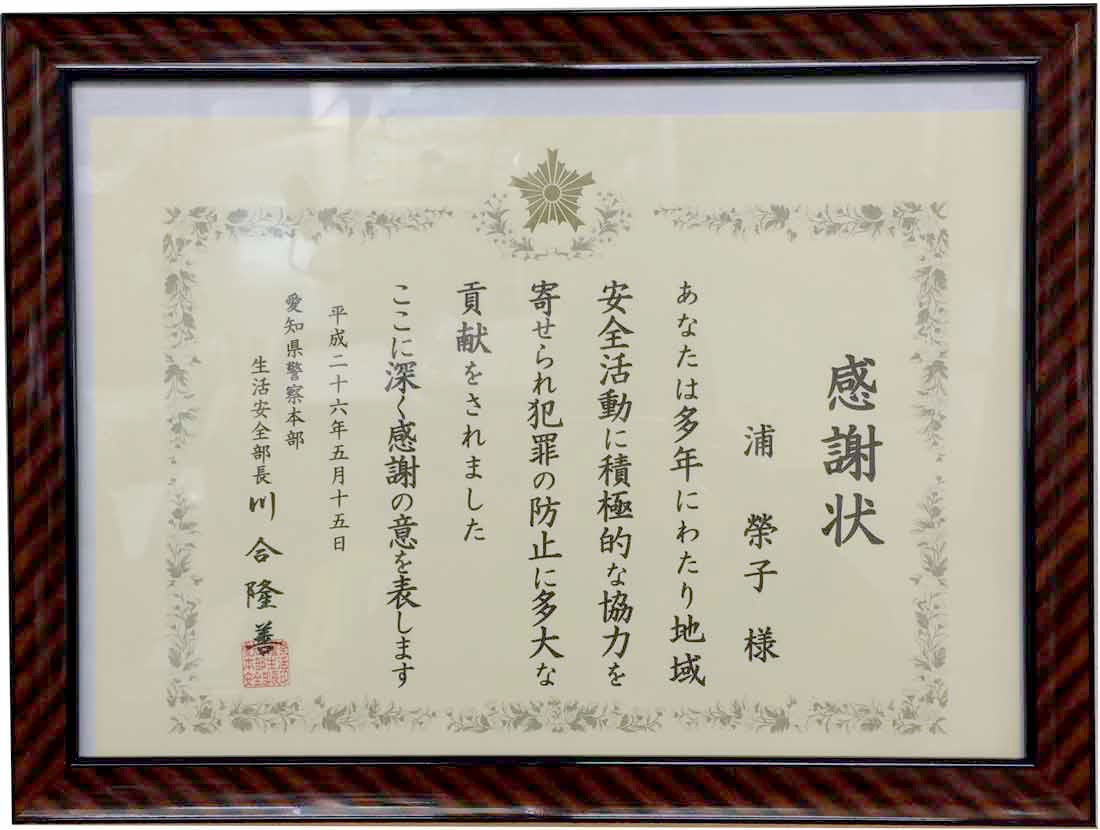 感謝状
浦 榮子 様
あなたは多年にわたり地域
安全活動に積極的な協力を
寄せられ犯罪の防止に多大な
貢献をされました
ここに深く感謝の意を表します
平成二十六年五月十五日
愛知県警察本部
生活安全部長 川合隆善